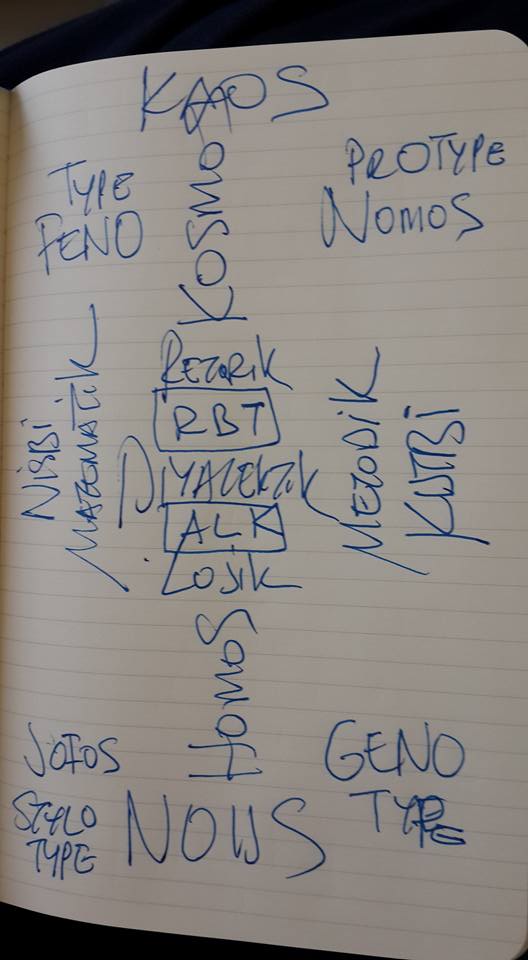 KAOS
TYPE
FENO
KOSMO
PROTYPE
NOMOS
NİSBİ
MATEMATİK
RETORİK
RBT
DİYALEKTİK
ALK
LOJİK
METODİK
KUTBİ
HOMOS
SOFOS
STYLO
TYPE
NOUS
GENO
TYPE